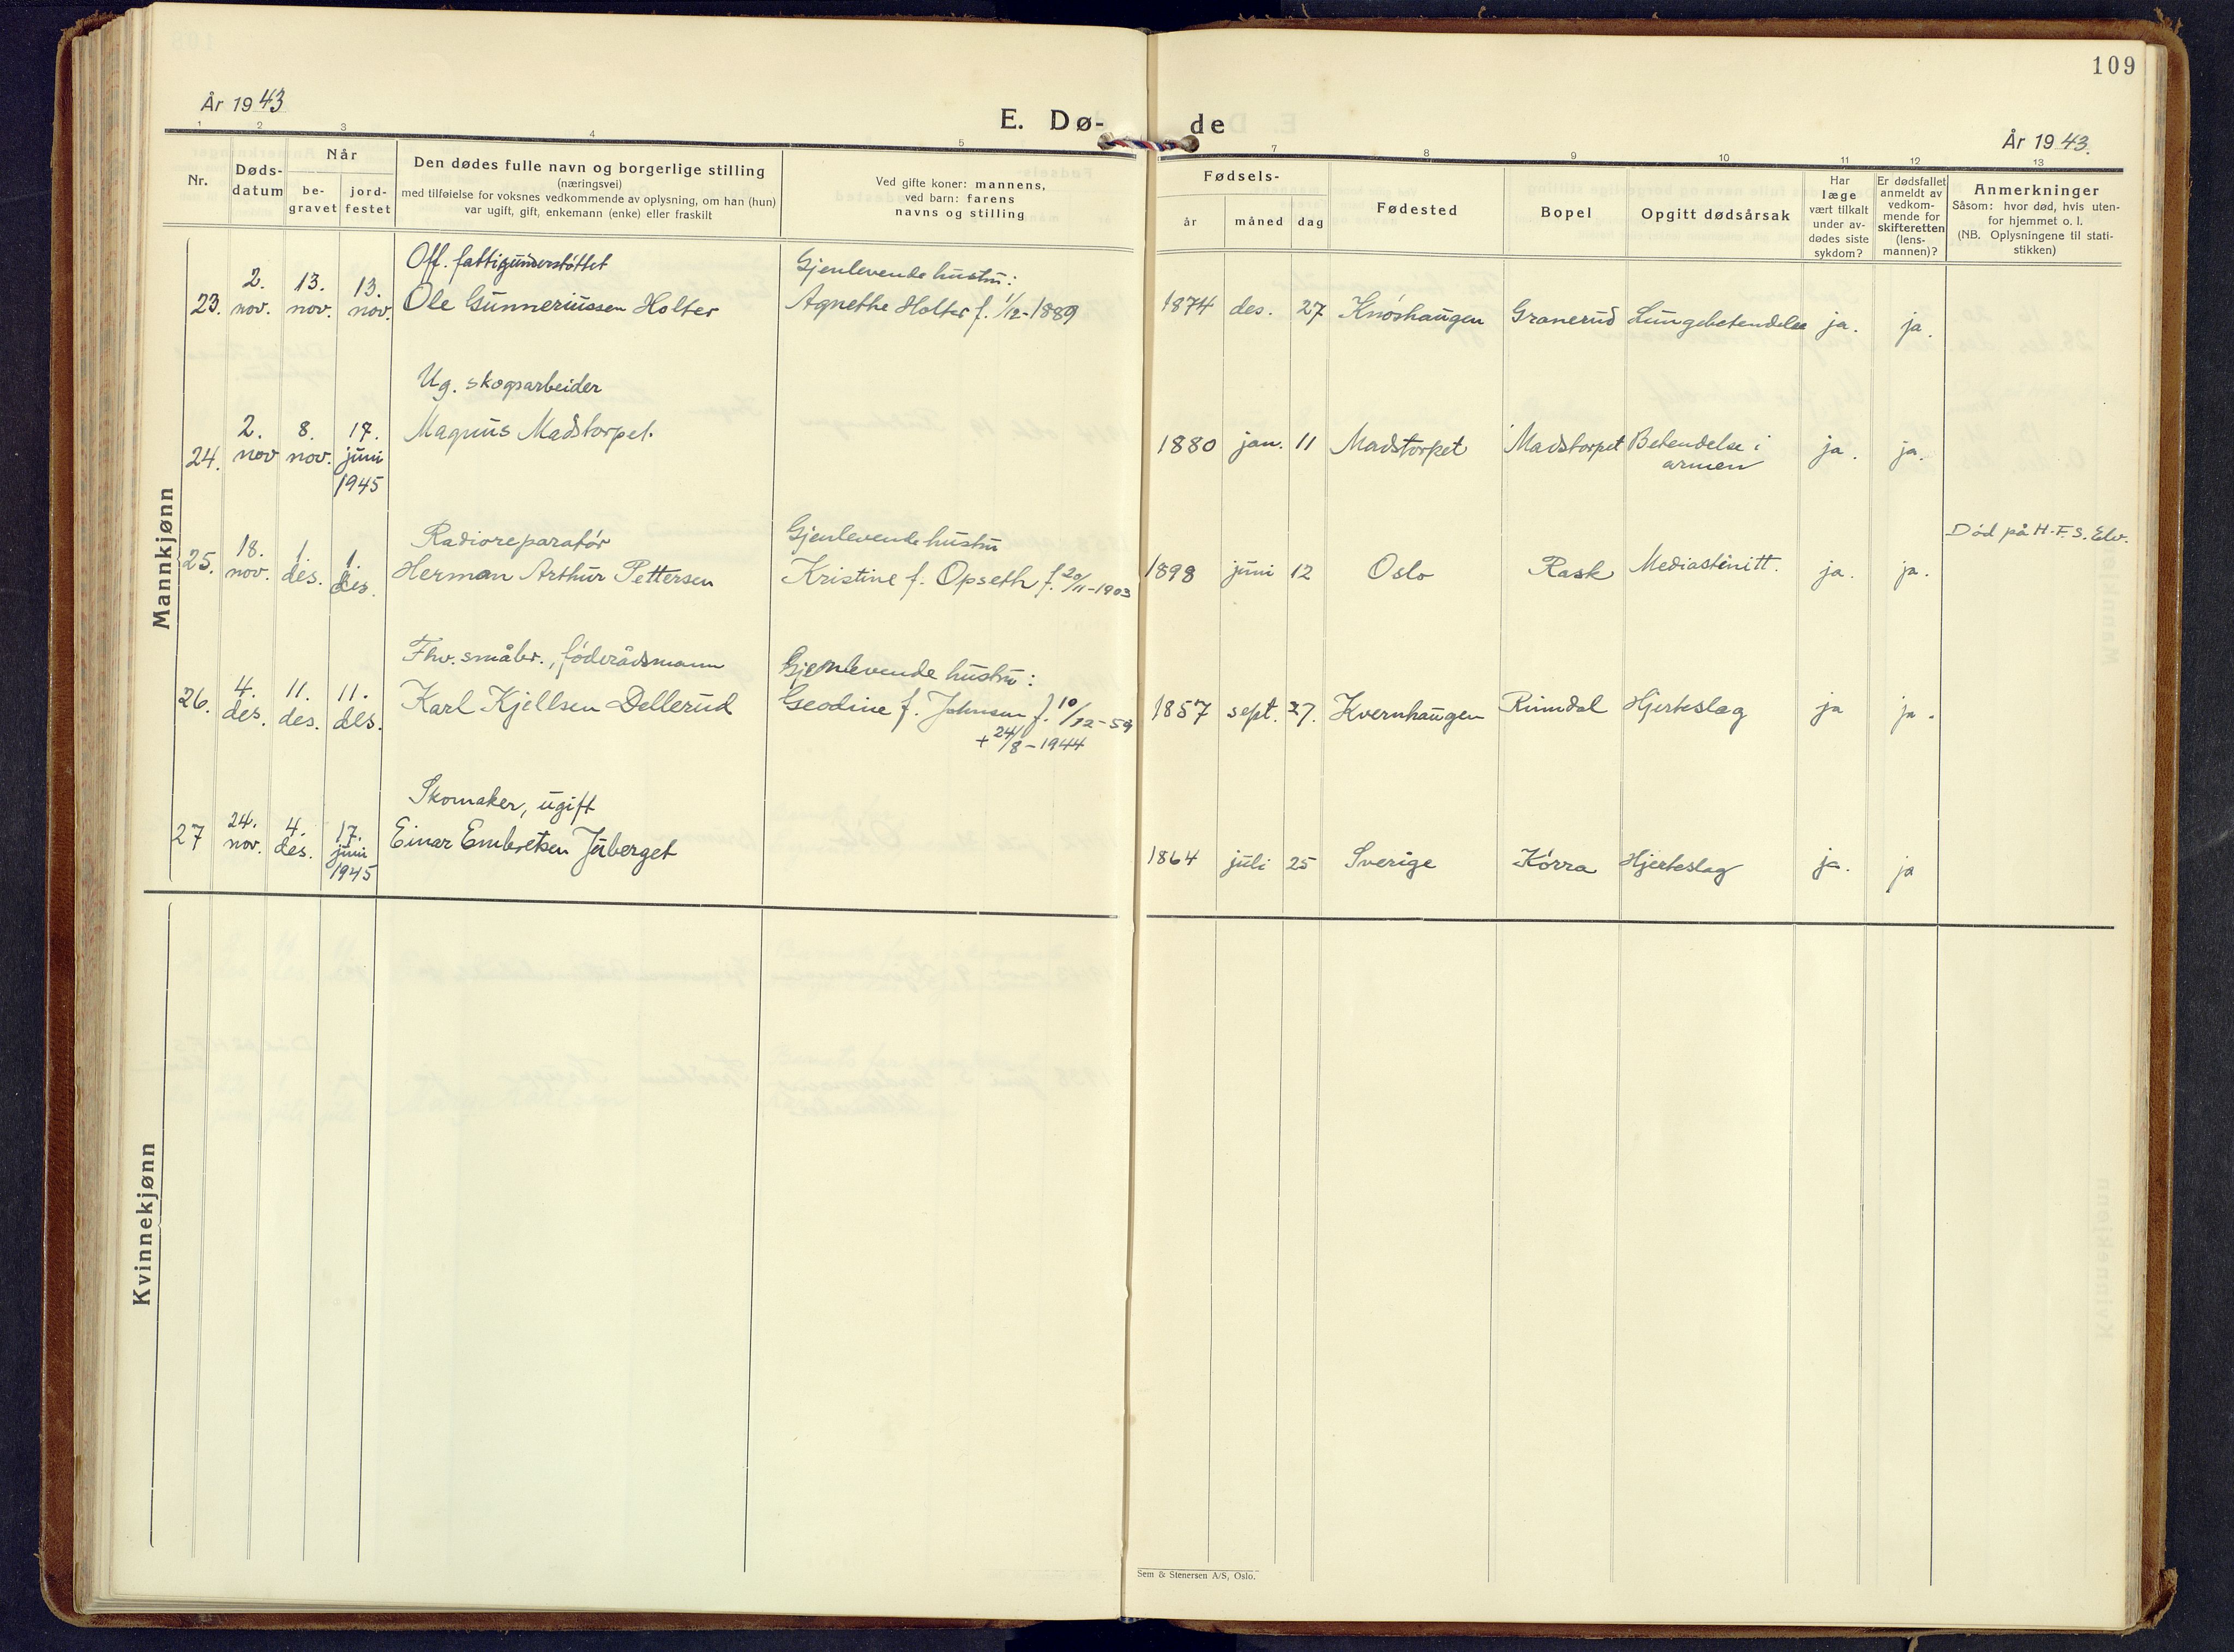 109
År 1943
E. Dø-
de
År 1943.
1 2 3 4 5 7 8 9 10 11 12 13
Nr.
Døds-
datum
Når
be-
gravet
jord-
festet
Den dødes fulle navn og borgerlige stilling
(næringsvei)
med tilføielse for voksnes vedkommende av oplysning, om han (hun)
var ugift, gift, enkemann (enke) eller fraskilt
Ved gifte koner: mannens,
ved barn: farens
navns og stilling
Fødsels-
år måned dag
Fødested
Bopel
Opgitt dødsårsak
Har
læge
vært tilkalt
under av-
dødes siste
sykdom?
Er dødsfallet
anmeldt av
vedkom-
mende for
skifteretten
(lens-
mannen)?
Anmerkninger
Såsom: hvor død, hvis uten-
for hjemmet o. l.
(NB. Oplysningene til stati-
stikken)
Mannkjønn
Off. fattigunderstøttet Gjenlevende hustru:
23. 2. nov. 13. nov. 13. nov. Ole Gunneriussen Holter Agnethe Holter f. 1/12-1889 1874 des. 27 Knoshaugen Granerud Lungebetendelse ja. ja.
Ug. skogsarbeider
24. 2. nov 8. nov. 17. juni 1945 Magnus Madstorpet. 1880 jan. 11 Madstorpet Madstorpet Betendelse i armen ja. ja.
Radioreparatør Gjenlevende hustru Død på H.F.S. Elv.
25. 18. nov. 1. des. 1. des. Herman Arthur Pettersen Kristine f. Opseth f. 20/11-1903 1898 juni 12 Oslo Rask Mediastinitt. ja. ja.
Fhv. småbr., føderådsmann Gjenlevende hustru:
26. 4. des. 11. des. 11. des. Karl Kjellsen Dellerud Geodine f. Johnsen f. 10/12-59 1857 sept. 27. Kvernhaugen Rinndal Hjerteslag ja ja.
+ 24/8-1944
Skomaker, ugift
27 24. nov. 4. des. 17. juni 1945 Einar Embretsen Juberget 1864 juli 25 Sverige Kørra Hjerteslag ja. ja
Kvinnekjønn
Sem & Stenersen A/S, Oslo.